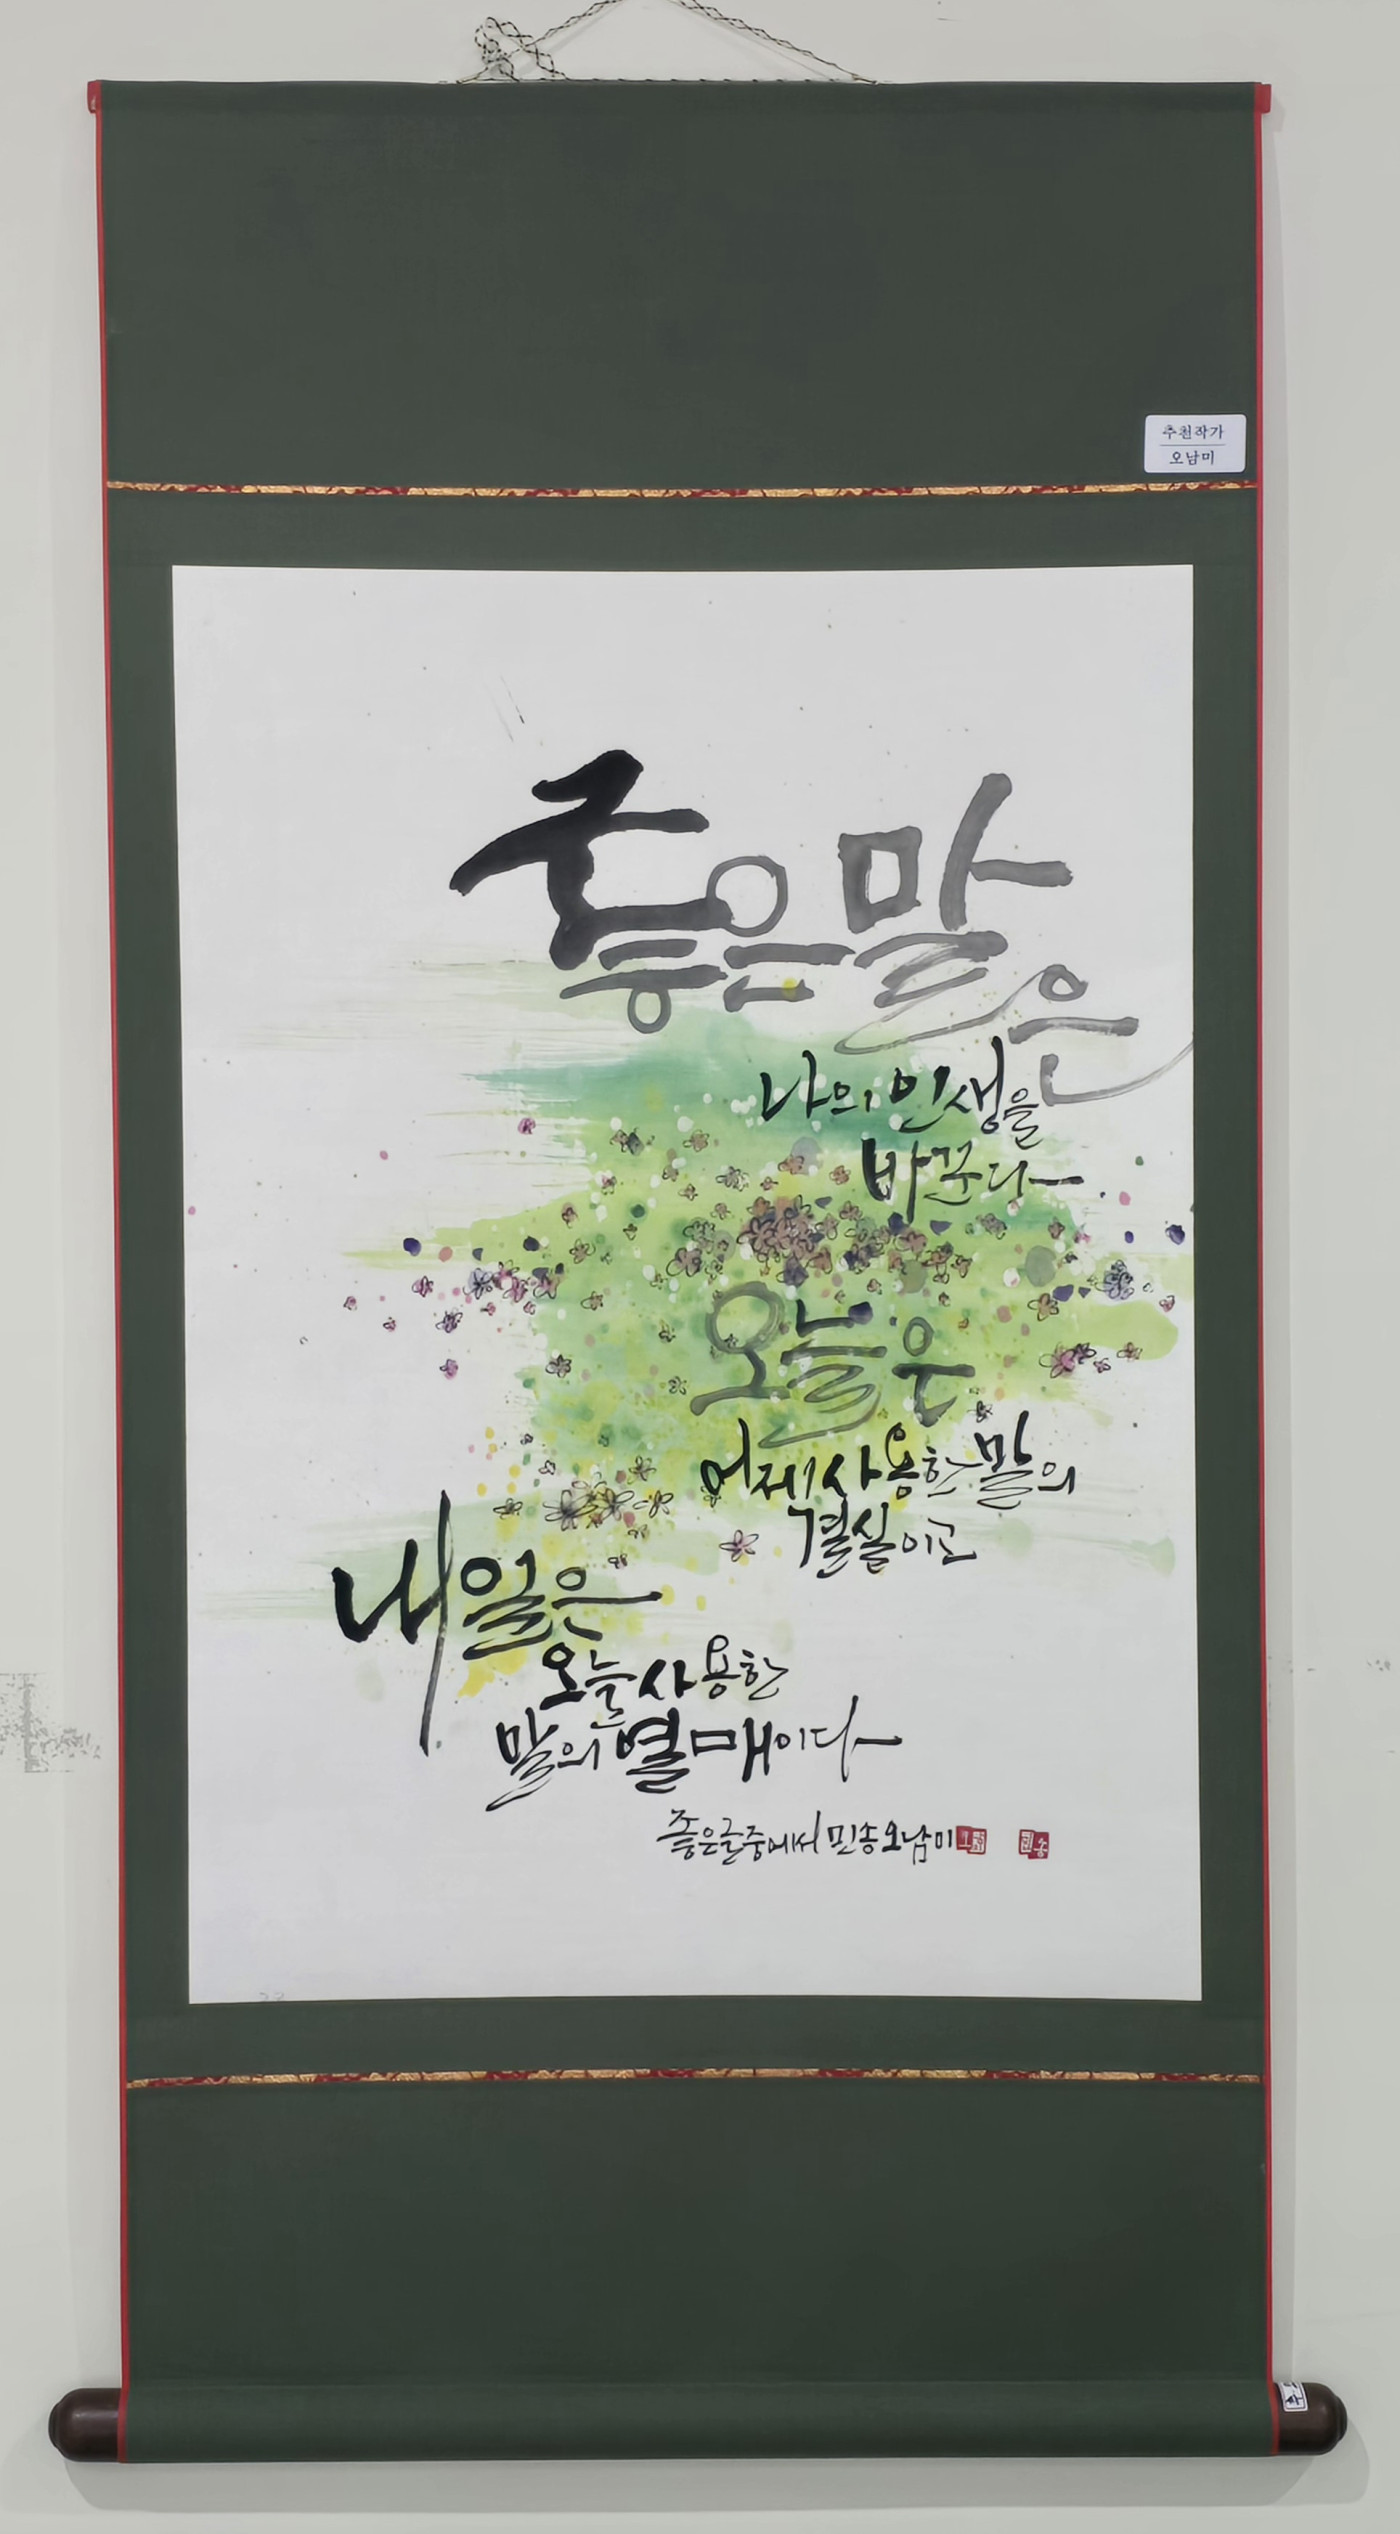 추천작가
오남미
좋은 말은
나의 인생을
바꾼다
오늘은
어제 사용한 말의
결실이고
내일은
오늘 사용한
말의 열매이다
좋은글중에서 민송 오남미
민송